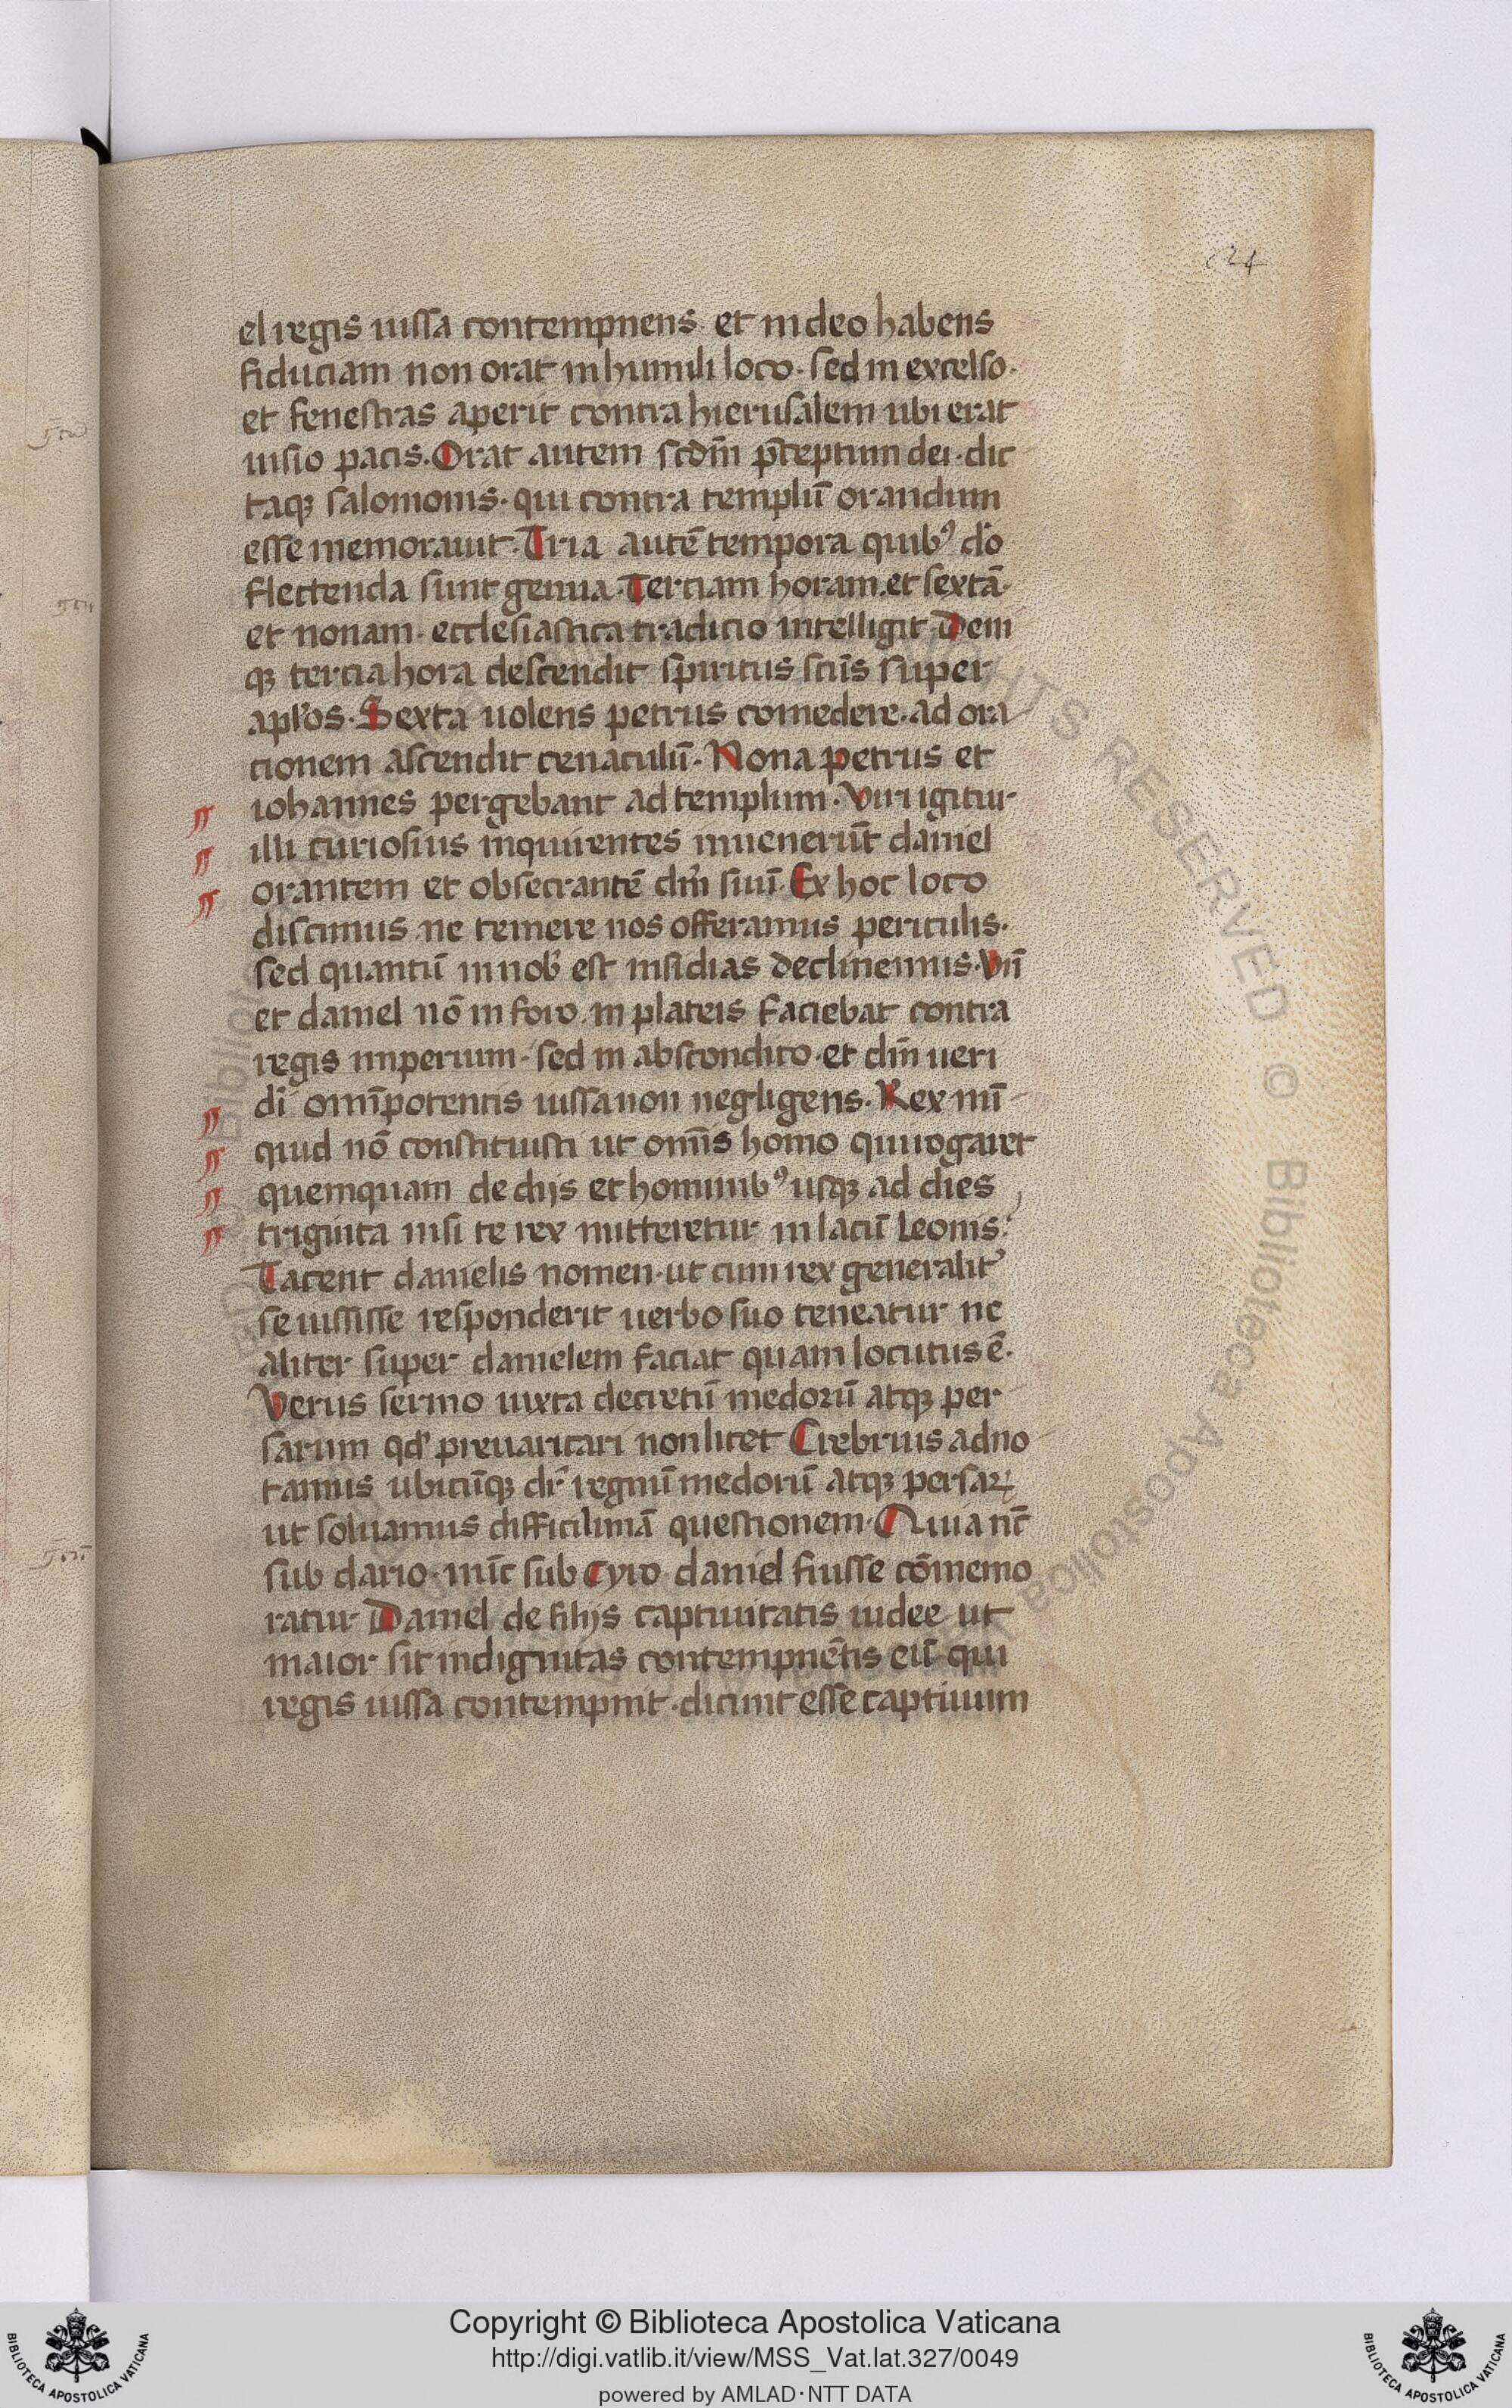 24
el regis iussa contempnens. et in deo habens
fiduciam non orat in humili loco. sed in excelso.
et fenestras aperit contra hierusalem ubi erat
uisio pacis. Orat autem scdm̄ p̄ceptum dei. dic
taqꝫ salomonis. qui contra templū orandum
esse memorauit. Tria autē tempora quibꝰ do
flectenda sunt genua. Terciam horam. et sextā.
et nonam. ecclesiastica tradicio intelligit. Deni
qꝫ tercia hora descendit spiritus scūs super
apl'os. Sexta uolens petrus comedere. ad ora
tionem ascendit cenaculū. Nona petrus et
iohannes pergebant ad templum. Viri igitur
illi curiosius inquirentes inuenerūt daniel
orantem et obsecrantē dm̄ suū. Ex hoc loco
discimus ne temere nos offeramus periculis.
sed quantū in nob' est insidias declinemus. Vn̄
et daniel nō in foro. in plateis faciebat contra
regis imperium. sed in abscondito. et dm̄ ueri
dī omīpotentis iussa non negligens. Rex nū
quid nō constituisti ut omīs homo qui rogaret
quemquam de dijs et hominibꝰ usqꝫ ad dies
triginta nisi te rex mitteretur in lacū leonis.
Tacent danielis nomen. ut cum rex generalit'
se iussisse responderit uerbo suo teneatur ne
aliter super danielem faciat quam locutus ē.
Verus sermo iuxta decretū medorū atqꝫ per
sarum qd' preuaricari non licet Crebrius adno
tamus ubicūqꝫ dr̄ regnū medorū atqꝫ persaꝝ
ut soluamus difficilimā questionem. Quia nc̄
sub dario. nūc sub cyro daniel fuisse cōmemo
ratur Daniel de filijs captiuitatis iudee ut
maior sit indignitas contempnētis eū qui
regis iussa contempnit. dicunt esse captiuum
RIGHTS RESERVED © Biblioteca Apostolica
Copyright © Biblioteca Apostolica Vaticana
http://digi.vatlib.it/view/MSS_Vat.lat.327/0049
powered by AMLAD·NTT DATA
BIBLIOTECA APOSTOLICA VATICANA
BIBLIOTECA APOSTOLICA VATICANA